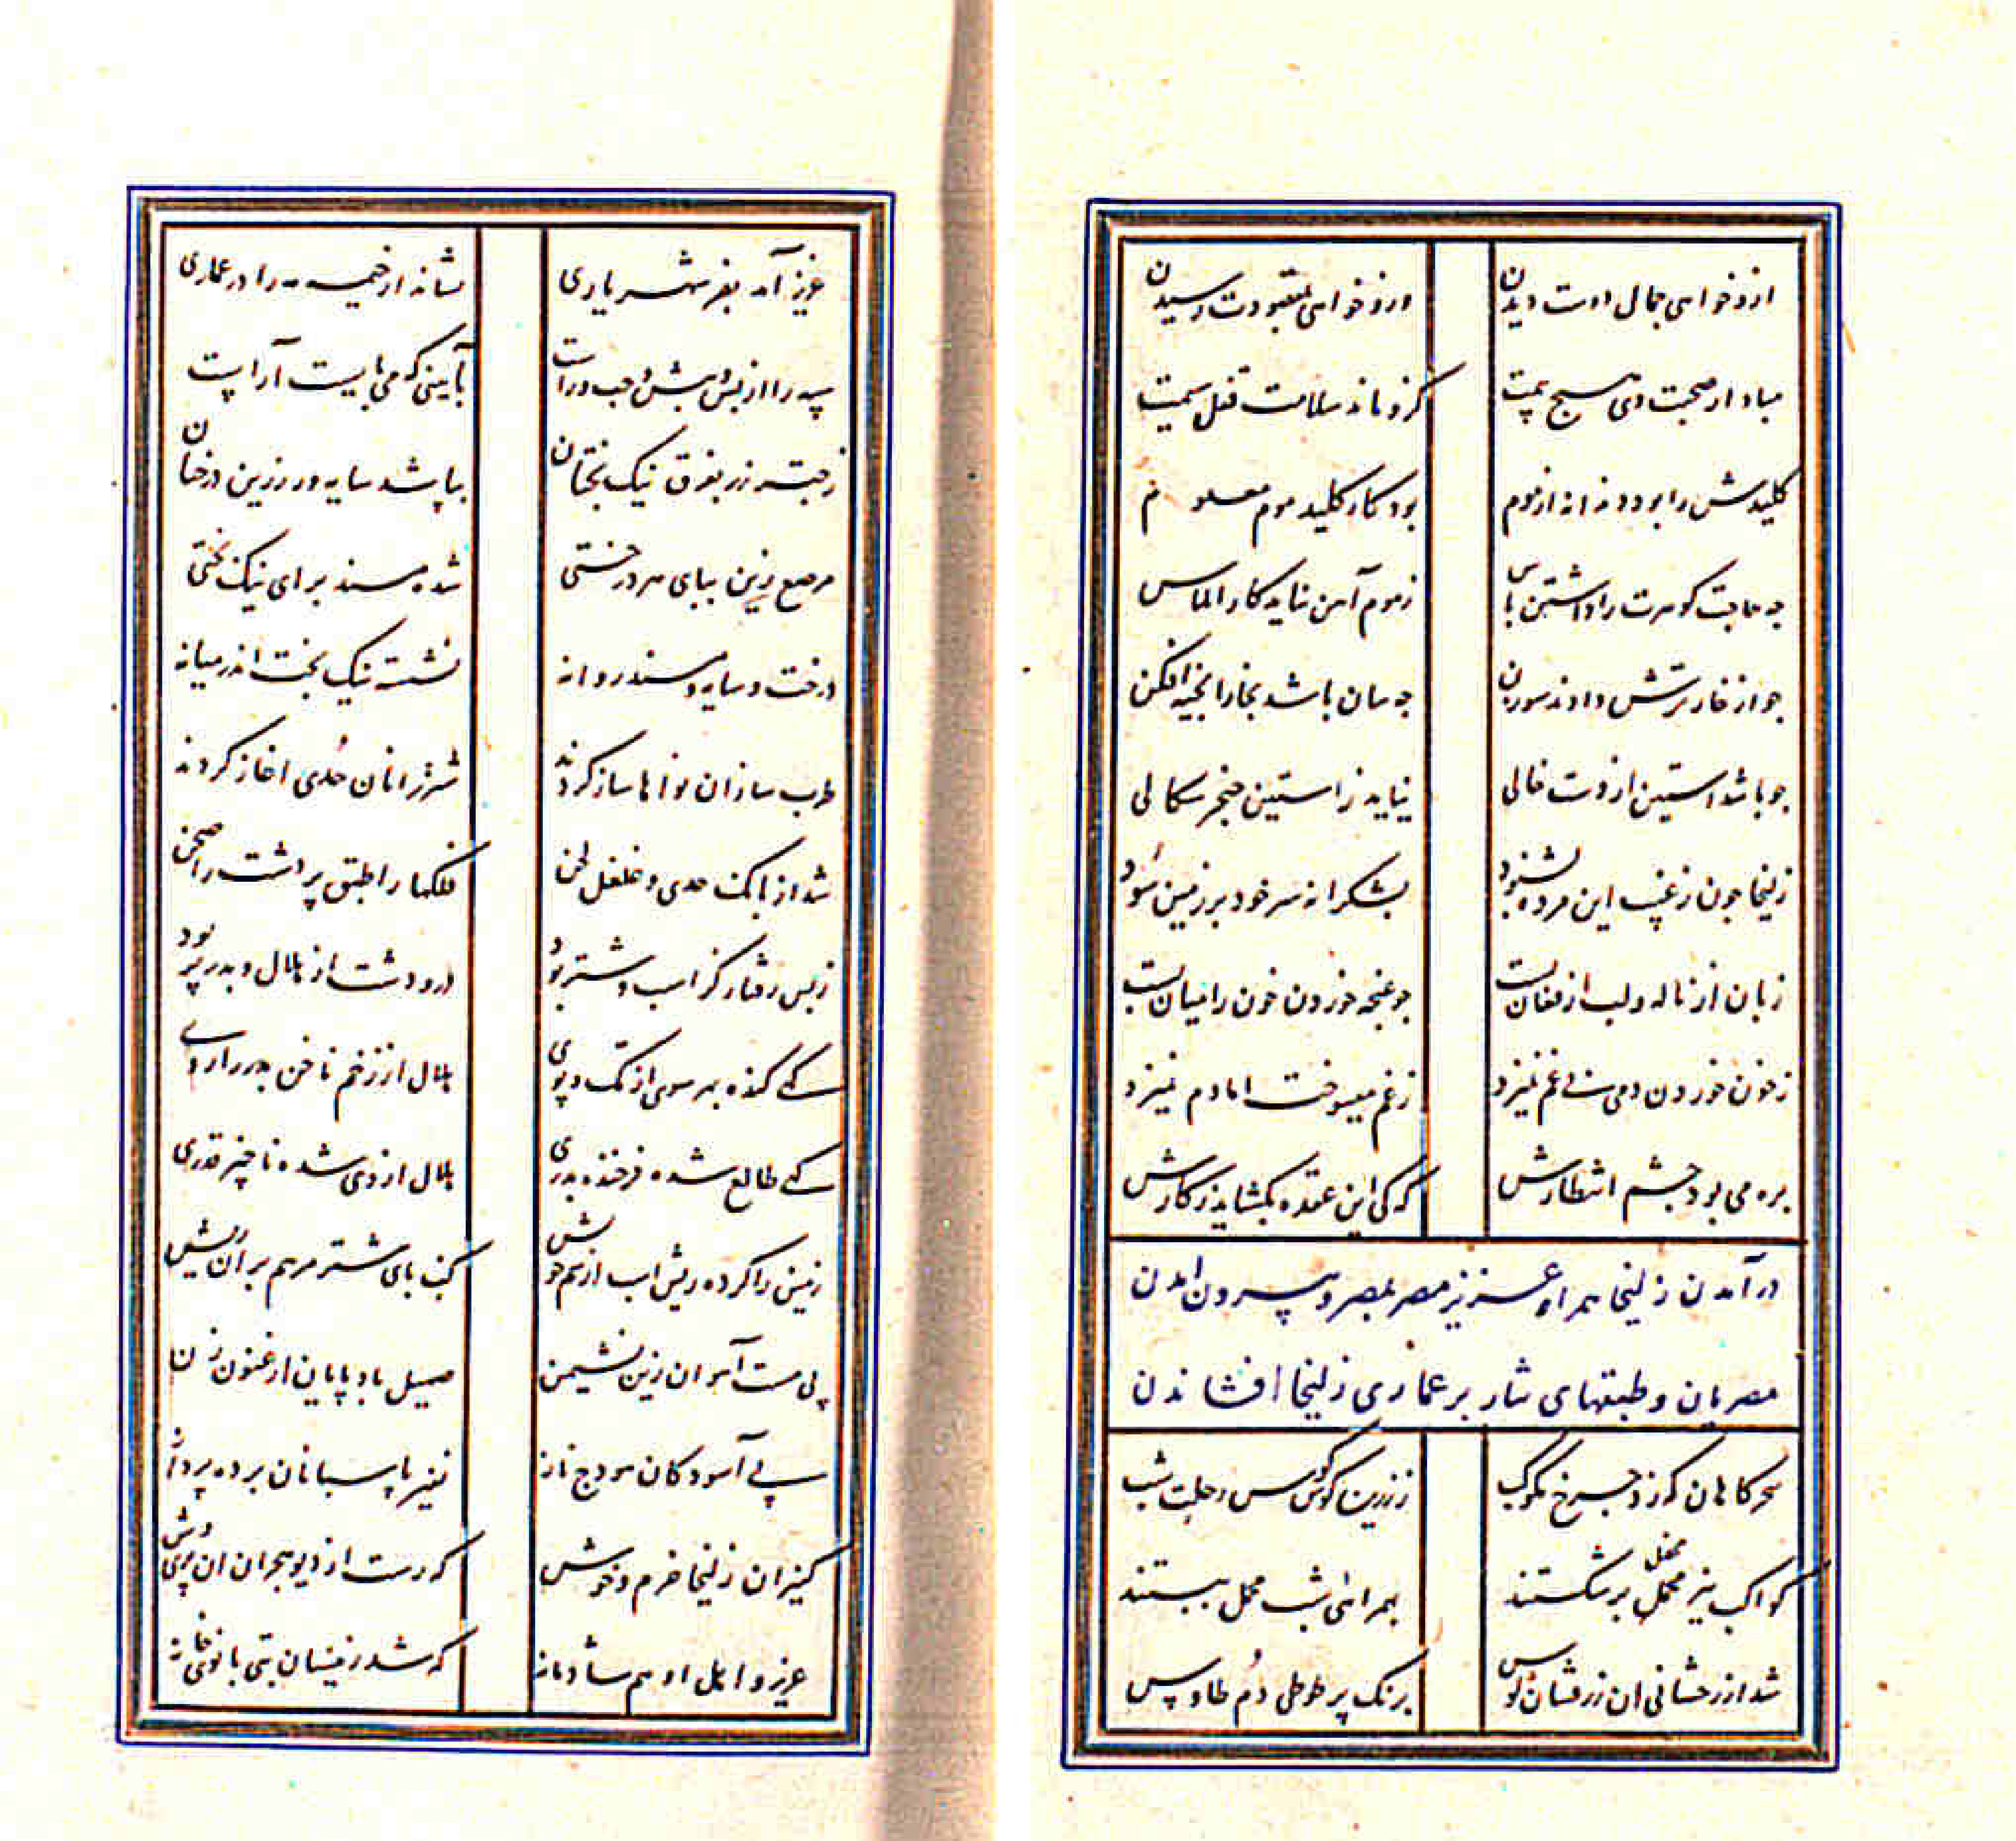 ازو خواهی جمال دوست دیدن
وزو خواهی بمقصودت رسیدن
مباد از صحبت وی هیچ بیمت
کزو ماند سلامت قفل سیمت
کلیدش را بود دندانه از موم
بود کار کلید موم معلوم
چه حاجت کوهرت را داشتن پاس
ز موم آهن نیاید کار الماس
چو از خار ترش دادند سوزن
چه سان باشد بخارا بخیه افکن
چو باشد آستین از دست خالی
نیاید ز آستین خنجر سکالی
زلیخا چون ز غیب این مژده بشنود
بشکرانه سر خود بر زمین سود
زبان از ناله و لب از فغان بست
چو غنچه خوردن خون را میان بست
ز خون خوردن دمی بی غم نمیزد
ز غم میسوخت اما دم نمیزد
بره می بود چشم انتظارش
که کی این عقده بکشاید ز کارش
در آمدن زلیخا همراه عزیز مصر بمصر و بیرون آمدن
مصریان و طبقهای نثار بر عماری زلیخا افشاندن
سحرکاهان که زد چرخ مکوکب
ز زرین کوس کوس رحلت شب
کواکب نیز محفل محمل بر شکستند
بهمراهی شب محمل ببستند
شد از رخشانی آن زر فشان کوس
برنک پر طوطی دُم طاوس
عزیز آمد بفر شهریاری
نشاند از خیمه مه را در عماری
سپه را از پس و پیش و چپ و راست
بآیینی که می بایست آراست
ز چتر زر بفرق نیک بختان
بپا شد سایه ور زرین درختان
مرصع زین بپای هر درختی
شده مسند برای نیک بختی
درخت و سایه و مسند روانه
نشسته نیک بخت اندر میانه
طرب سازان نواها ساز کردند
شتر رانان حُدی اغاز کردند
شد از بانک حدی و غلغل لحن
فلکها را طبق پر دشت را صحن
ز بس رفتار کز اسب و شتر بود
در و دشت از هلال و بدر پر بود
کهی کنده بهر سوی از تک و پوی
هلال از زخم ناخن بدر را روی
کهی طالع شده فرخنده بدری
هلال از وی شده ناچیز قدری
زمین را کرده ریش اسب از سم خویش
کف پای شتر مرهم بر آن ریش
پی مست آهوان زین نشیمن
صهیل باد پایان ارغنون زن
پی آسودکان هودج ناز
نفیر پاسبانان برده پرداز
کنیزان زلیخا خرم و خوش
که رست از دیو هجران ان پری وش
عزیز و اهل او هم شادمانه
که شد زینسان بتی بانوی خانه